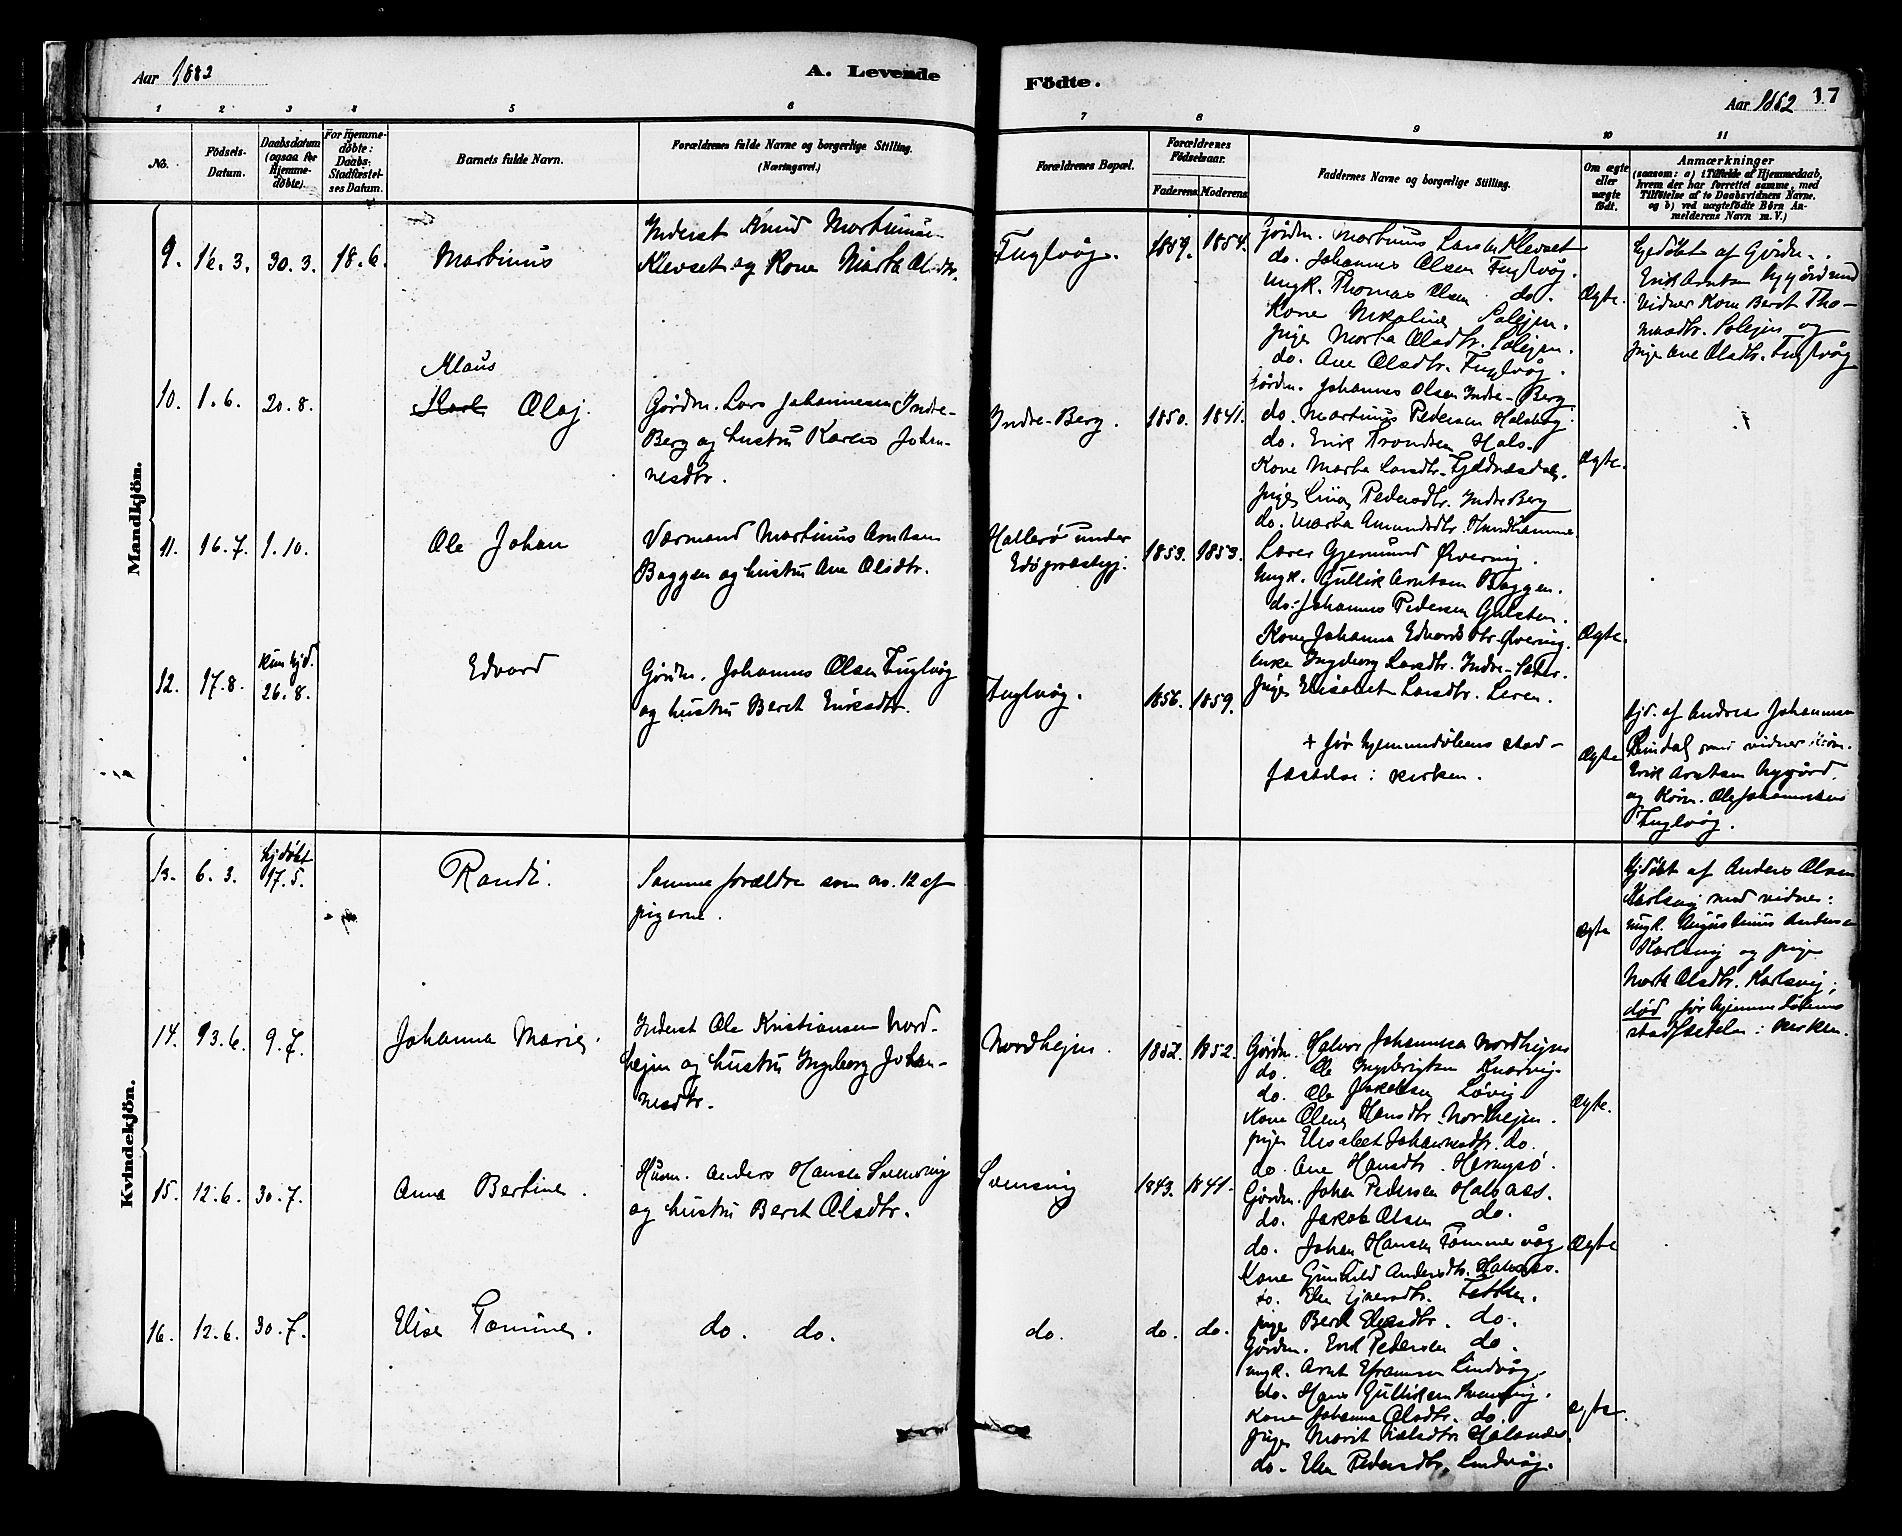 Aar 1882
A. Levende
Födte.
Aar 1882
17
1 2 3 4 5 6
7 8 9 10 11
No.
Födsels-Datum.
Daabsdatum (ogsaa for Hjemme-döbte).
For Hjemme-döbte: Daabs-Stadfæstel-ses Datum.
Barnets fulde Navn.
Forældrenes fulde Navne og borgerlige Stilling.
(Næringsvei.)
Forældrenes Bopæl.
Forældrenes Födselsaar.
Faderens. Moderens
Faddernes Navne og borgerlige Stilling.
Om ægte eller uægte födt.
Anmærkninger
(saasom: a) i Tilfælde af Hjemmedaab,
hvem der har forrettet samme, med
Tilföielse af to Daabsvidners Navne.
og b) ved uægtefödte Börn An-
melderens Navn m. V.)
Mandkjön.
9. 16.3. 30.3. 18.6. Martinus
Inderst Knud Martinusen
Klevset og Kone Marta Olsdtr.
Fuglvåg. 1859. 1854.
Gårdm. Martinus Larsen Klevset
do. Johannes Olsen Fuglvåg.
Ungk. Thomas Olsen do.
Kone Nikoline Solejen.
Pige Marta Olsdtr. Solejen.
do. Ane Olsdtr. Fuglvåg.
Ægte.
Hjdöbt af Gårdm.
Erik Arntsen Nygård med
vidner Kone Beret Tho-
masdtr. Solejen og
pige Ane Olsdtr. Fuglvåg
10. 1.6. 20.8.
Klaus
Olaj.
Gårdm. Lars Johannesen Indre-
Berg og hustru Karen Johan-
nesdtr.
Indre-Berg. 1850. 1841.
Gårdm. Johannes Olsen Indre-Berg
do. Martinus Pedersen
do. Erik Trondsen Hals.
Kone Marta Larsdtr.
Pige Pedersdtr. Indre Berg
do. Marta Amundsdtr.
Ægte.
11. 16.7. 1.10. Ole Johan
Værmand Martinus Arntsen
Baggen og hustru Ane Olsdtr.
Hallerö under
Edöpræstegj. 1853. 1853.
Lærer Gjermund Øvering.
Ungk. Gullik Arntsen Baggen.
do. Johannes Pedersen Gulsten.
Kone Johanna Edvardsdtr. Øvering.
Enke Ingeborg Larsdtr. Indre-Sæter.
Pige Elisabet Larsdtr. Leren.
Ægte.
12. 17.8. kun hjd. 26.8. Edvard
Gårdm. Johannes Olsen Fuglvåg
og hustru Beret Eriksdtr.
Fuglvåg. 1856. 1859.
+ før hjemmedåbens stad-
fæstelse i kirken.
Ægte
Hjd. af Andreas Johannesen
Rindal med vidner
Erik Arntsen Nygård,
og Ole Johannesen
Fuglvåg.
Kvindekjön.
13. 6.3. hjdöbt 17.5. Randi.
Samme forældre som no. 12 af
pigerne.
Ægte
Hjdöbt af Anders Olsen
Karlsvig med vidner:
ungk. Augustinus Andersen
Karlsvig og pige
Marit Olsdtr. Karlsvig;
død før hjemmedåbens
stadfæstelse i kirken.
14. 13.6. 9.7. Johanna Marie.
Inderst Ole Kristiansen Nord-
hejm og hustru Ingeborg Johan-
nesdtr.
Nordhejm. 1852. 1852.
Gårdm. Halvor Johannesen Nordhejm
do. Ole Ingebrigtsen
do. Ole Jakobsen Løvig
Kone Olena Hansdtr. Nordhejm.
Pige Elisabet Johannesdtr. do.
do. Ane Hansdtr.
Ægte.
15. 12.6. 30.7. Anna Bertine.
Husm. Anders Hansen
og hustru Beret Olsdtr.
1843. 1841.
Gårdm. Johan Pedersen Halsaas.
do. Jakob Olsen do.
do. Johan Hansen Tömmervåg
Kone Gunhild Andersdtr. Halsås.
do. Elen
Pige Beret do.
Ægte
16. 12.6. 30.7. Elise
do. do.
do. do. do.
Gårdm. Erik Pedersen do.
ungk. Arnt Efraimsen Lindvåg.
do. Hans Gulliksen
Kone Johanna Olsdtr. do.
Pige Marit
do. Elen Pedersdtr. Lindvåg.
Ægte.